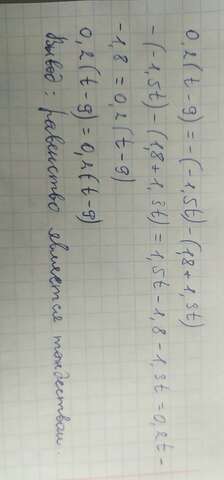 0,2(t-9)=-(-1,5t)-(1,8+1,3t)
-(1,5t)-(1,8+1,3t)=1,5t-1,8-1,3t=0,2t-
-1,8=0,2(t-9)
0,2(t-9)=0,2(t-9)
Вывод: равенство является тождеством.